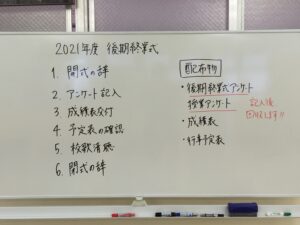 2021年度 後期終業式
1. 開式の辞
2. アンケート記入
3. 成績表交付
4. 予定表の確認
5. 校歌清聴
6. 閉式の辞
配布物
・後期終業式アンケート
授業アンケート
記入後
回収します!!
・成績表
・行事予定表